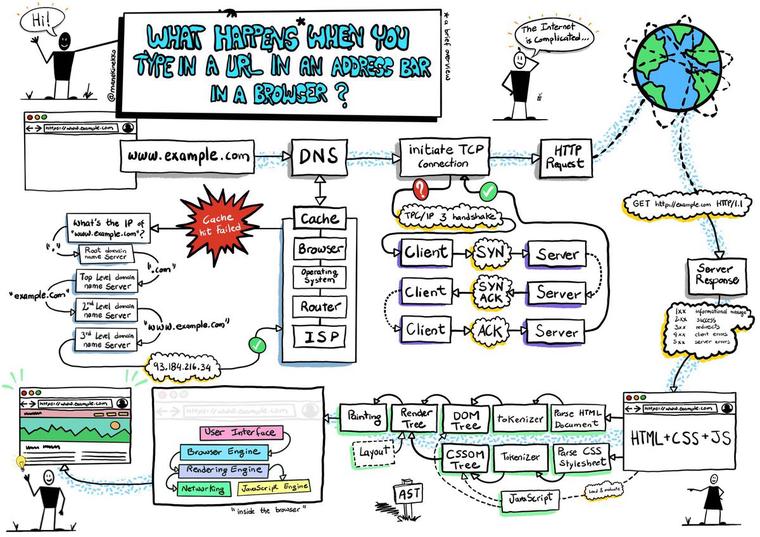 Hi!
@manekinekko
WHAT HAPPENS* WHEN YOU
TYPE IN A URL IN AN ADDRESS BAR
IN A BROWSER ?
* a brief overview
The Internet
is Complicated...
https://www.example.com
www.example.com
DNS
initiate TCP
Connection
HTTP
Request
GET http://example.com HTTP/1.1
Server
Response
1xx informational message
2xx success
3xx redirects
4xx client errors
5xx server errors
?
TPC/IP 3 handshake
Client
SYN
Server
Client
SYN
ACK
Server
Client
ACK
Server
Cache
Browser
Operating
System
Router
ISP
Cache
hit failed
What's the IP of
"www.example.com"?
"."
Root domain
name Server
".com"
Top Level domain
name Server
"example.com"
2nd Level domain
name Server
"www.example.com"
3rd Level domain
name Server
93.184.216.34
https://www.example.com
HTML+CSS+JS
Parse HTML
Document
tokenizer
DOM
Tree
Render
Tree
Painting
Layout
Parse CSS
Stylesheet
Tokenizer
CSSOM
Tree
JavaScript
load & evaluate
AST
https://www.example.com
User Interface
Browser Engine
Rendering Engine
Networking
JavaScript Engine
"inside the browser"
https://www.example.com